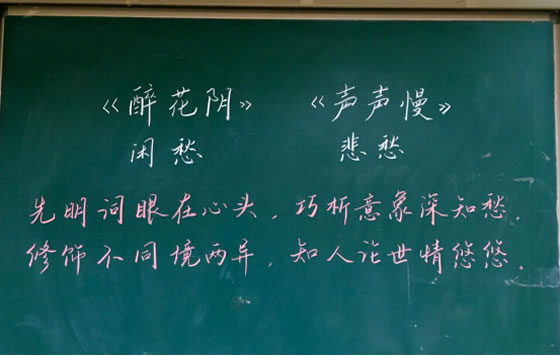 《醉花阴》 《声声慢》
闲愁 悲愁
先明词眼在心头，巧析意象深知愁.
修饰不同境两异，知人论世情悠悠.